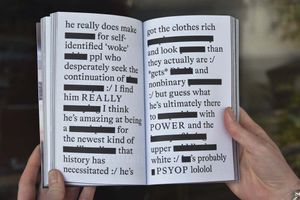 he really does make
for self-
identified 'woke'
ppl who
desperately seek the
continuation of
:/ I find
him REALLY
I think
he's amazing at being
a
for the
newest kind of
that
history has
necessitated :/ he's
got the clothes rich
and look than
they actually are :/
*gets* and
nonbinary
:/ but guess what
he's ultimately there
to with
POWER and the
upper
white :/ 's probably
PSYOP lololol